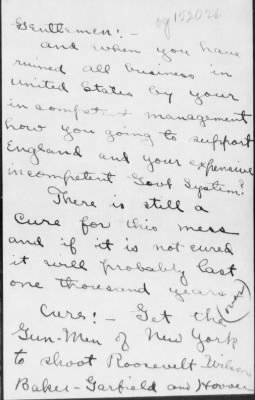 og 152026
Gentlemen! -
and when you have
ruined all business in
United States by your
incompetent management
how you going to support
England and your expensive
incompetent Govt System?
There is still a
Cure for this mess
and if it is not cured
it will probably last
one thousand years
(over)
Cure! - Get the
Gun-Men of New York
to shoot Roosevelt Wilson
Baker - Garfield and Hoover